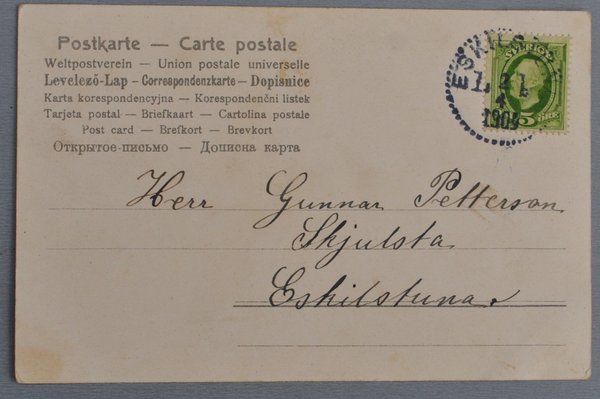 Postkarte — Carte postale
Weltpostverein — Union postale universelle
Levelező-Lap — Correspondenzkarte — Dopisnice
Karta korespondencyjna — Korespondenční listek
Tarjeta postal — Briefkaart — Cartolina postale
Post card — Brefkort — Brevkort
Открытое-письмо — Дописна карта
SVERIGE
5 ÖRE
Herr Gunnar Petterson
Skjulsta
Eskilstuna.